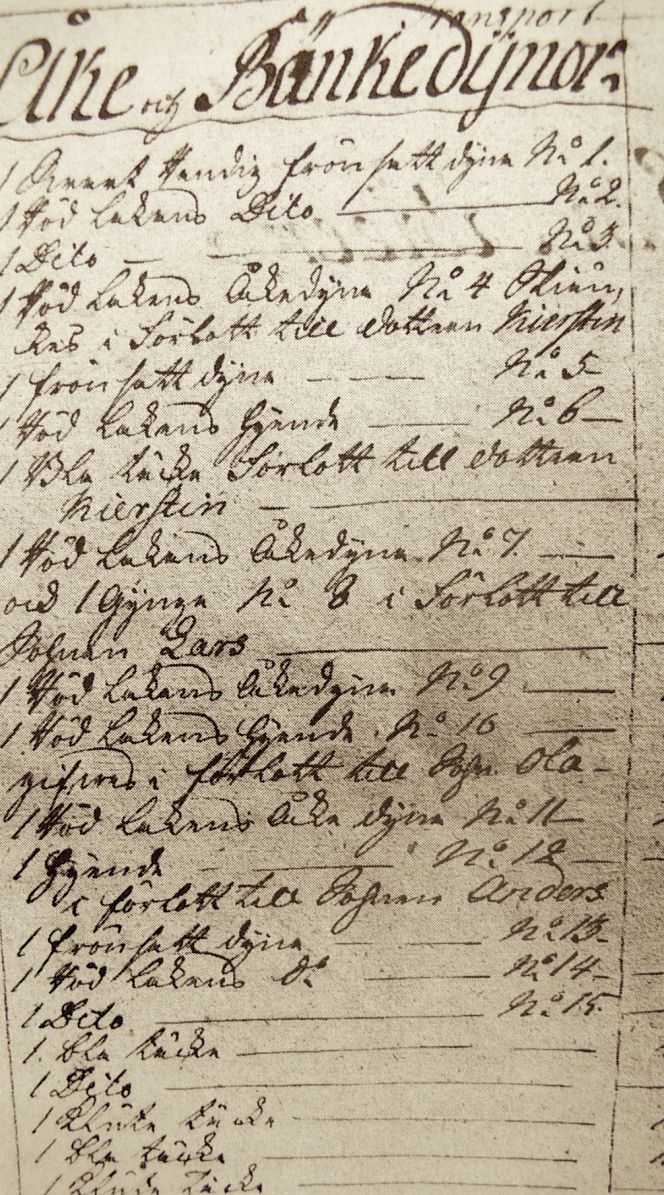 Transport
Åke och Bänkedÿnor
1 Hendig frönsatt dyna N:o 1.
1 Röd Lakens Dito N:o 2.
1 Dito N:o 3
1 Röd Lakens Åkedyna N:o 4
i Förlott till dottren Kierstin
1 frönsatt dyna N:o 5
1 Röd Lakens Hyende N:o 6
1 Bla täcke Förlott till dottren
Kierstin
1 Röd Lakens Åkedyna N:o 7
och 1 N:o 8 i Förlott till
Sohnen Lars
1 Röd Lakens Åkedyna N:o 9
1 Röd Lakens Hyende N:o 10
gifves i förlott till Sohn Ola
1 Röd Lakens Åke dyna N:o 11
1 Hyende N:o 12
i förlott till Sohnen Anders
1 frönsatt dyna N:o 13
1 Röd Lakens d:o N:o 14
1 Dito N:o 15
1 bla täcke
1 Dito
1 Klute täcke
1 bla täcke
1 Klute täcke